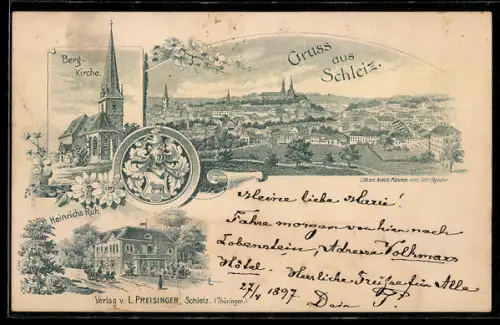 Berg-
kirche.
Gruss
aus
Schleiz.
Heinrichs Ruh.
Meine liebe Marie!
Fahre morgen von hier nach
Lobenstein, Adresse Volkmars
Hôtel. Herzliche Grüße für Alle
27/4 1897. Dein P.
Verlag v. L. PREISINGER, Schleiz. (Thüringen.)